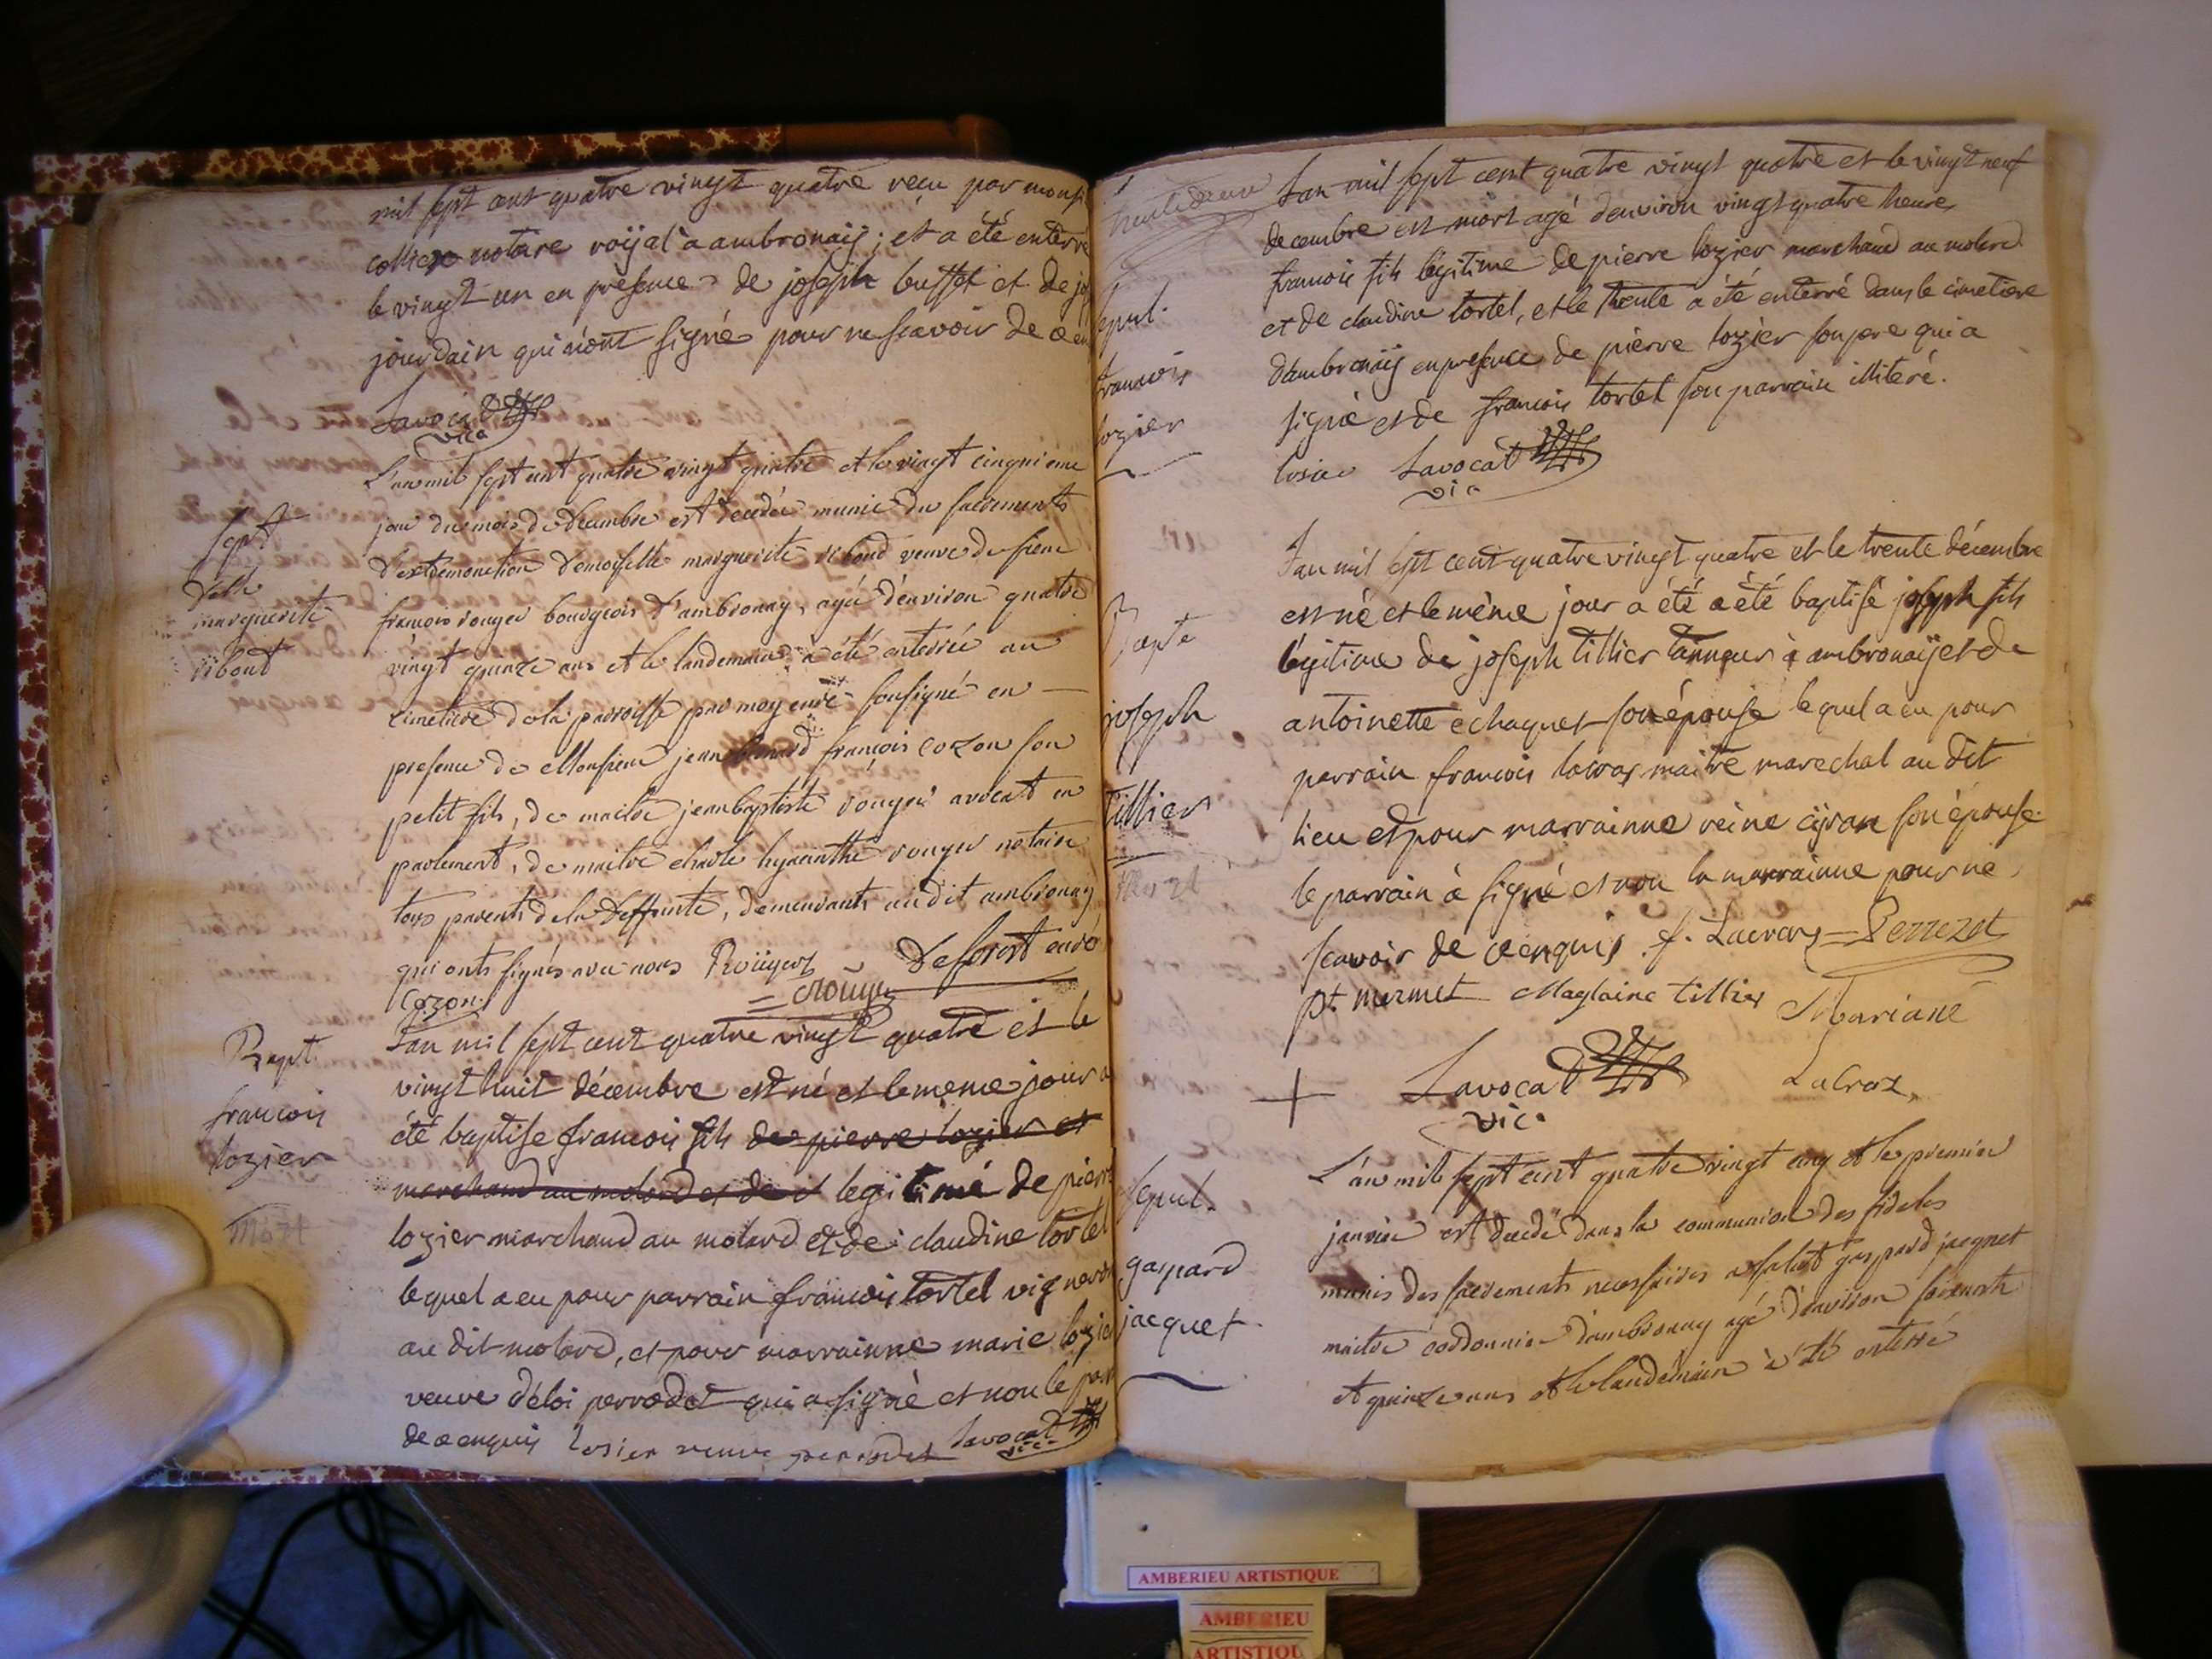 mil sept cent quatre vingt quatre recu par monsi
notaire roÿal a ambronaÿ; et a été enterré
le vingt un en présence de joseph buffet et de jo
jourdain qui n'ont signé pour ne scavoir de ce en
Lavocat
vic.
L'an mil sept cent quatre vingt quatre et le vingt cinquieme
jour du mois de decembre est decedée munie du sacrements
d'extremonction demoiselle marguerite riboud veuve du sieur
francois rouyer bourgeois d'ambronay, agée d'environ quatre
vingt quinze ans et le landemain a été enterrée au
cimetiere de la parroisse par moy curé sousigné en
presence de Monsieur jean françois cozon son
petit fils, de maitre jeanbaptiste rouyer avocat en
parlement, de maitre charle hyacinthe rouyer notaire
tous parents de la deffunte, demeurants au dit ambronay
qui onts signés avec nous Roüyer Deforest curé
Cozon. = Roüyer
Sept
Delle
marguerite
ribout
Bapt.
francois
lozier
mort
L'an mil sept cent quatre vingt quatre et le
vingt huit décembre est né et le meme jour a
été baptise francois fils de pierre lozier et
marchand au molard et de et legitimé de pierre
lozier marchand au molard et de claudine tortel
lequel a eu pour parrain francois tortel vigneron
au dit molard, et pour marrainne marie lozier
veuve d'éloi perrodet qui a signé et non le parr
de ce enquis losier veuve perrodet Lavocat
vic.
trente deux
sepul.
francois
lozier
L'an mil sept cent quatre vingt quatre et le vingt neuf
decembre est mort agé d'environ vingt quatre heure
francois fils légitime de pierre lozier marchand au molard
et de claudine tortel, et le trente a été enterré dans le cimetiere
d'ambronaÿ en presence de pierre lozier son pere qui a
signé et de francois tortel son parrain illiteré.
losier Lavocat
vic
Bapte
joseph
tillier
mort
L'an mil sept cent quatre vingt quatre et le trente décembre
est né et le même jour a été a été baptisé joseph fils
légitime de joseph tillier tanneur à ambronaÿ et de
antoinette echaquet son épouse lequel a eu pour
parrain francois lacroz maitre marechal au dit
lieu et pour marrainne reine cyvan son épouse
le parrain à signé et non la marrainne pour ne
scavoir de ce enquis. f. Lacroz = Perrezet
pt. mermet Maglaine tillier Mariane
Lavocat LaCroz,
vic.
sepul.
gaspard
jacquet
L'an mil sept cent quatre vingt cinq et le premier
janvier est decedé dans la communion des fideles
munis des sacrements necessaires a salut gaspard jacquet
maitre cordonnier d'ambronay agé d'environ soixante
et quinze ans et le landemain a été enterré
AMBERIEU ARTISTIQUE
AMBERIEU
ARTISTIQU